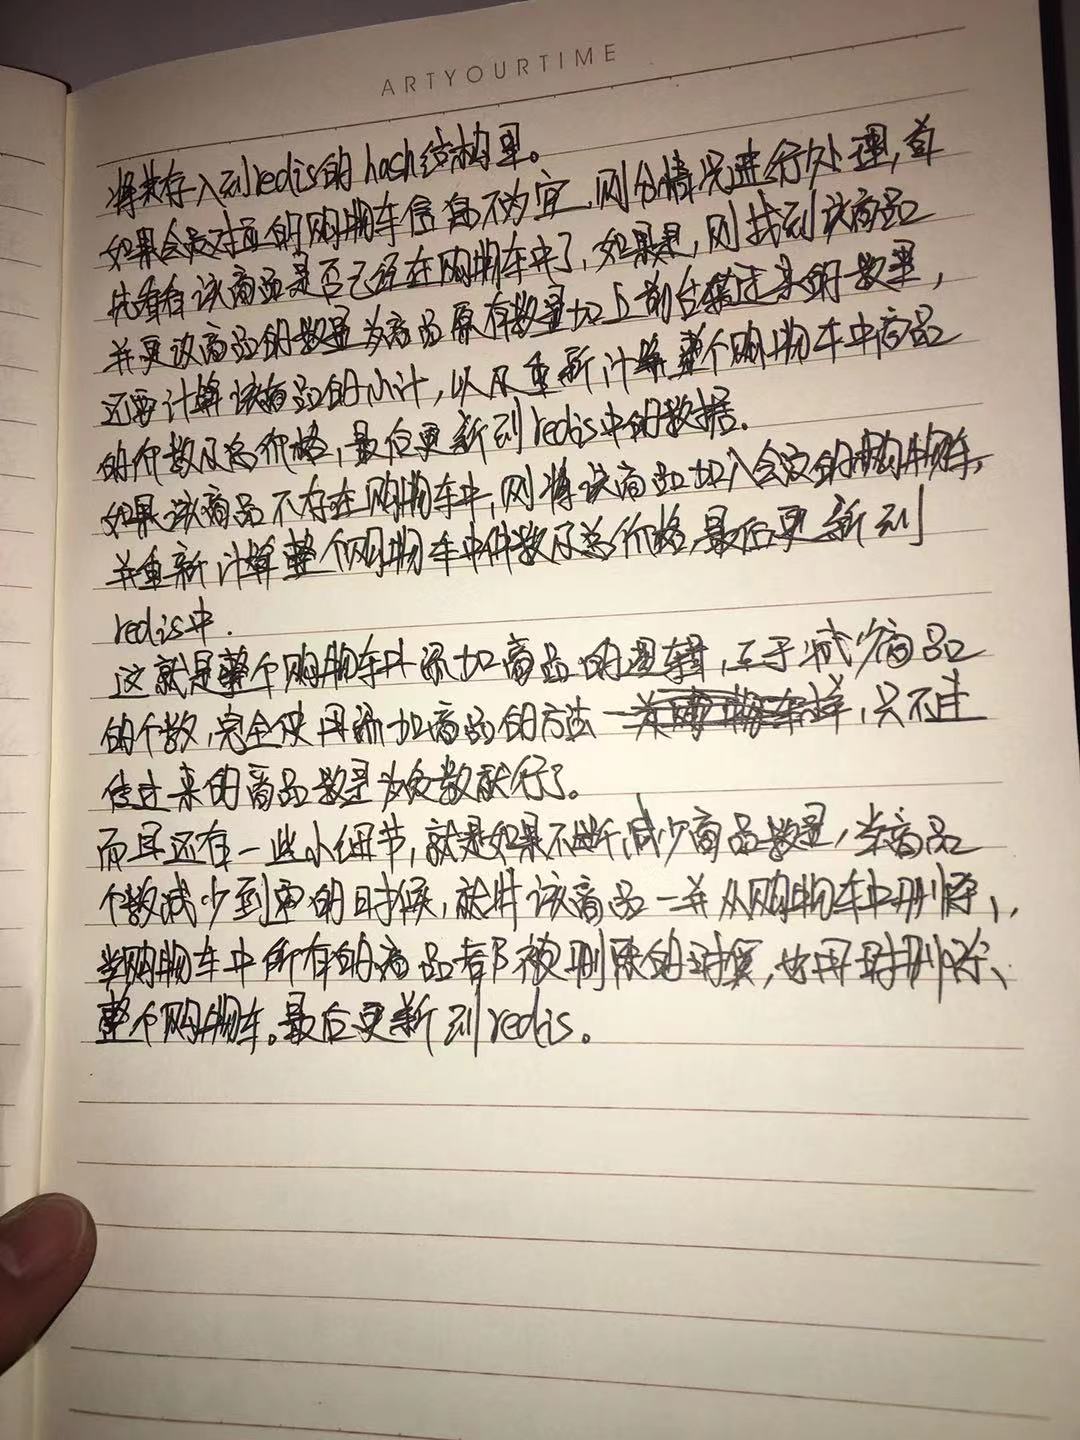 ARTYOURTIME
将其存入到redis的hash结构里。
如果会员对应的购物车信息不为空,则分情况进行处理,首
先看看该商品是否已经在购物车中了,如果是,则找到该商品
并更改商品的数量为商品原有数量加上前台传过来的数量,
还要计算该商品的小计,以及重新计算整个购物车中商品
的件数及总价格,最后更新到redis中的数据.
如果该商品不存在购物车中,则将该商品加入会员的购物车,
并重新计算整个购物车中件数及总价格,最后更新到
redis中.
这就是整个购物车中添加商品的逻辑,至于减少商品
的个数,完全使用添加商品的方法一样,只不过
传过来的商品数量为负数就行了。
而且还有一些小细节,就是如果不断减少商品数量,当商品
个数减少到零的时候,就将该商品一并从购物车中删除,
当购物车中所有的商品都被删除的时候,也同时删除
整个购物车。最后更新到redis。